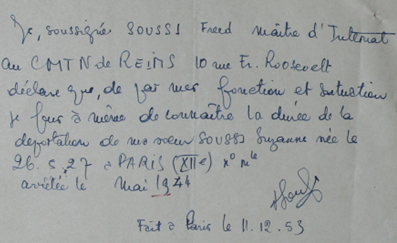 Je, soussigné SOUSSI Freed maître d'Internat
au CMTN de REIMS 10 rue Fr. Roosevelt
déclare que, de par mes fonction et situation
je fus à même de connaître la durée de la
deportation de ma sœur SOUSSI Suzanne née le
26.5.27 à PARIS (XIIe)
arrêtée le Mai 1944
Fait à Paris le 11.12.53